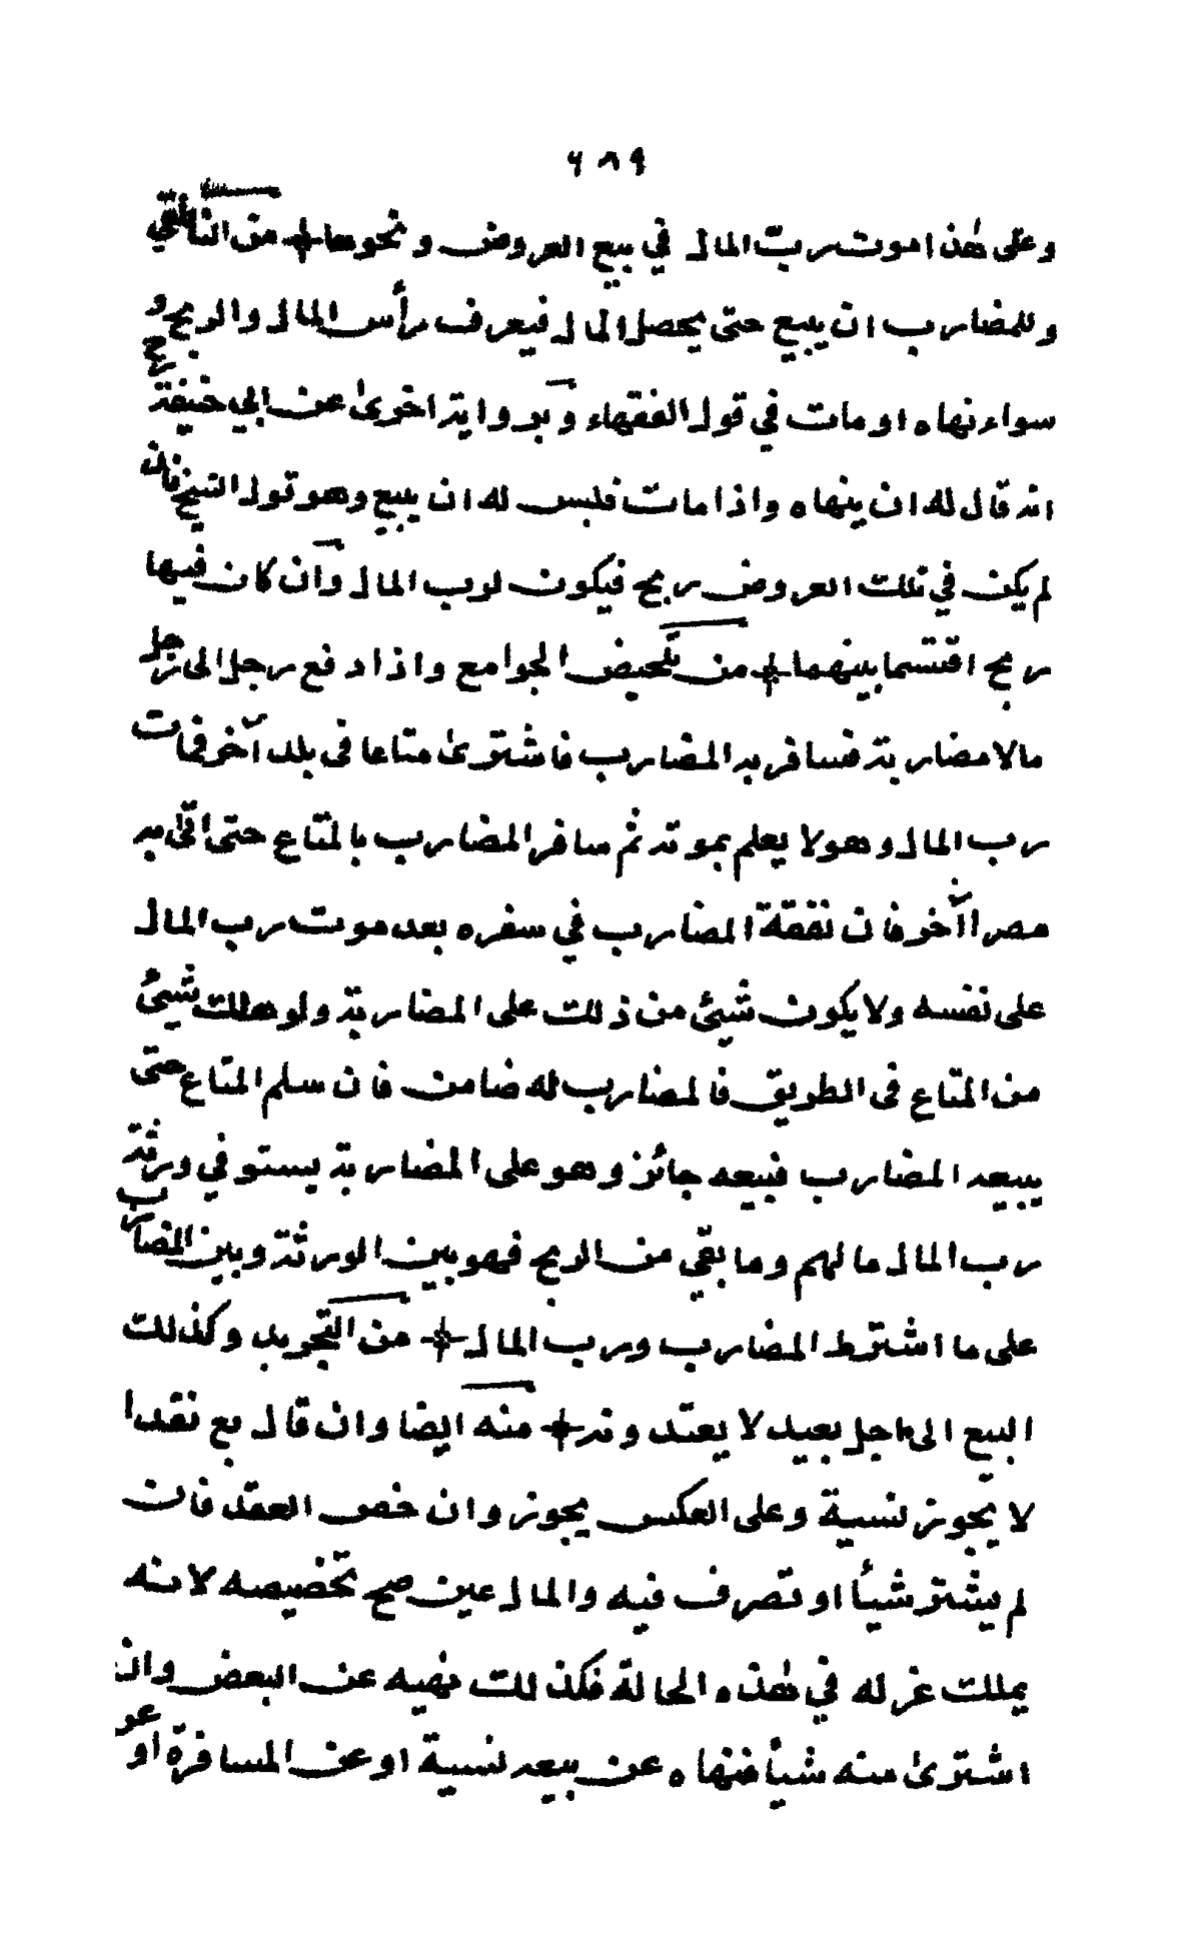 ٦٨٩
وعلى هذا موت ربّ المال في بيع العروض ونحوها + من الناطقي
وللمضارب ان يبيع حتى يحصل المال فيعرف رأس المال والربح و
سواء نهاه او مات في قول الفقهاء وبرواية اخرى عن ابي حنيفة رح
انه قال له ان ينهاه واذا مات فليس له ان يبيع وهو قول الشيخ فان
لم يكن في تلك العروض ربح فيكون لرب المال وان كان فيها
ربح اقتسما بينهما + من تلخيص الجوامع واذا دفع رجل الى رجل
مالا مضاربة فسافر به المضارب فاشترى متاعا في بلد آخر فمات
رب المال وهو لا يعلم بموته ثم سافر المضارب بالمتاع حتى اتى به
مصرا آخر فان نفقة المضارب في سفره بعد موت رب المال
على نفسه ولا يكون شيئ من ذلك على المضاربة ولو هلك شيئ
من المتاع في الطريق فالمضارب له ضامن فان سلم المتاع حتى
يبيعه المضارب فبيعه جائز وهو على المضاربة يستوفي ورثة
رب المال مالهم وما بقي من الربح فهو بين الورثة وبين المضارب
على ما اشترط المضارب ورب المال + من التجريد وكذلك
البيع الى اجل بعيد لا يعتدونه + منه ايضا وان قال بع نقدا
لا يجوز نسية وعلى العكس يجوز وان خص العقد فان
لم يشتر شيأ او تصرف فيه والمال عين صح تخصيصه لانه
يملك عزله في هذه الحالة فكذلك نهيه عن البعض وان
اشترى منه شيأ فنهاه عن بيعه نسية او عن المسافرة او عن